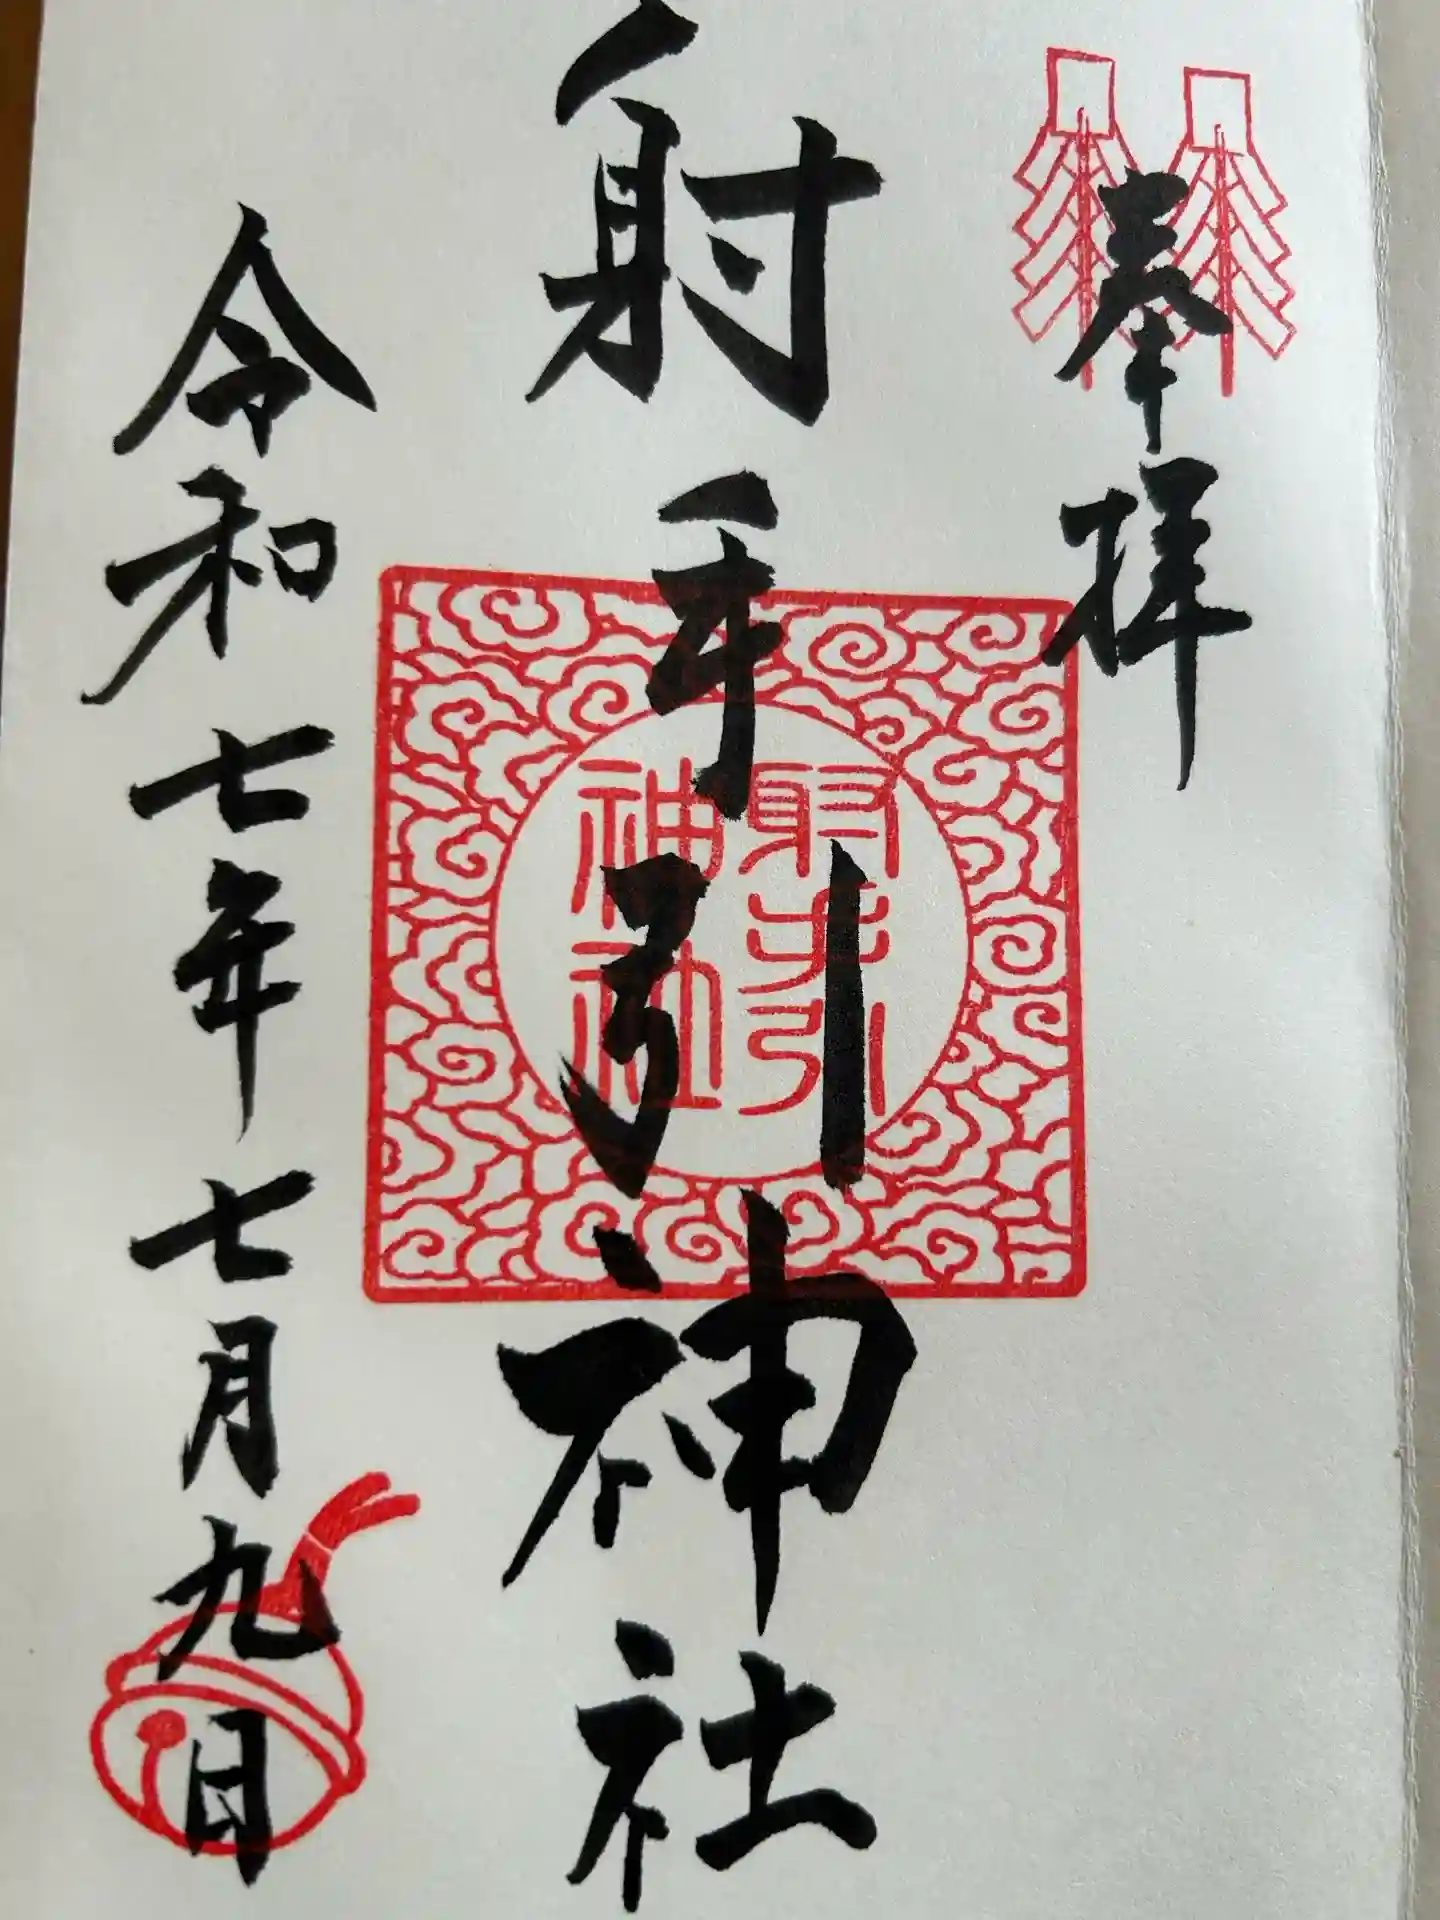 奉拝
射手引神社
射手引
神社
令和七年七月九日